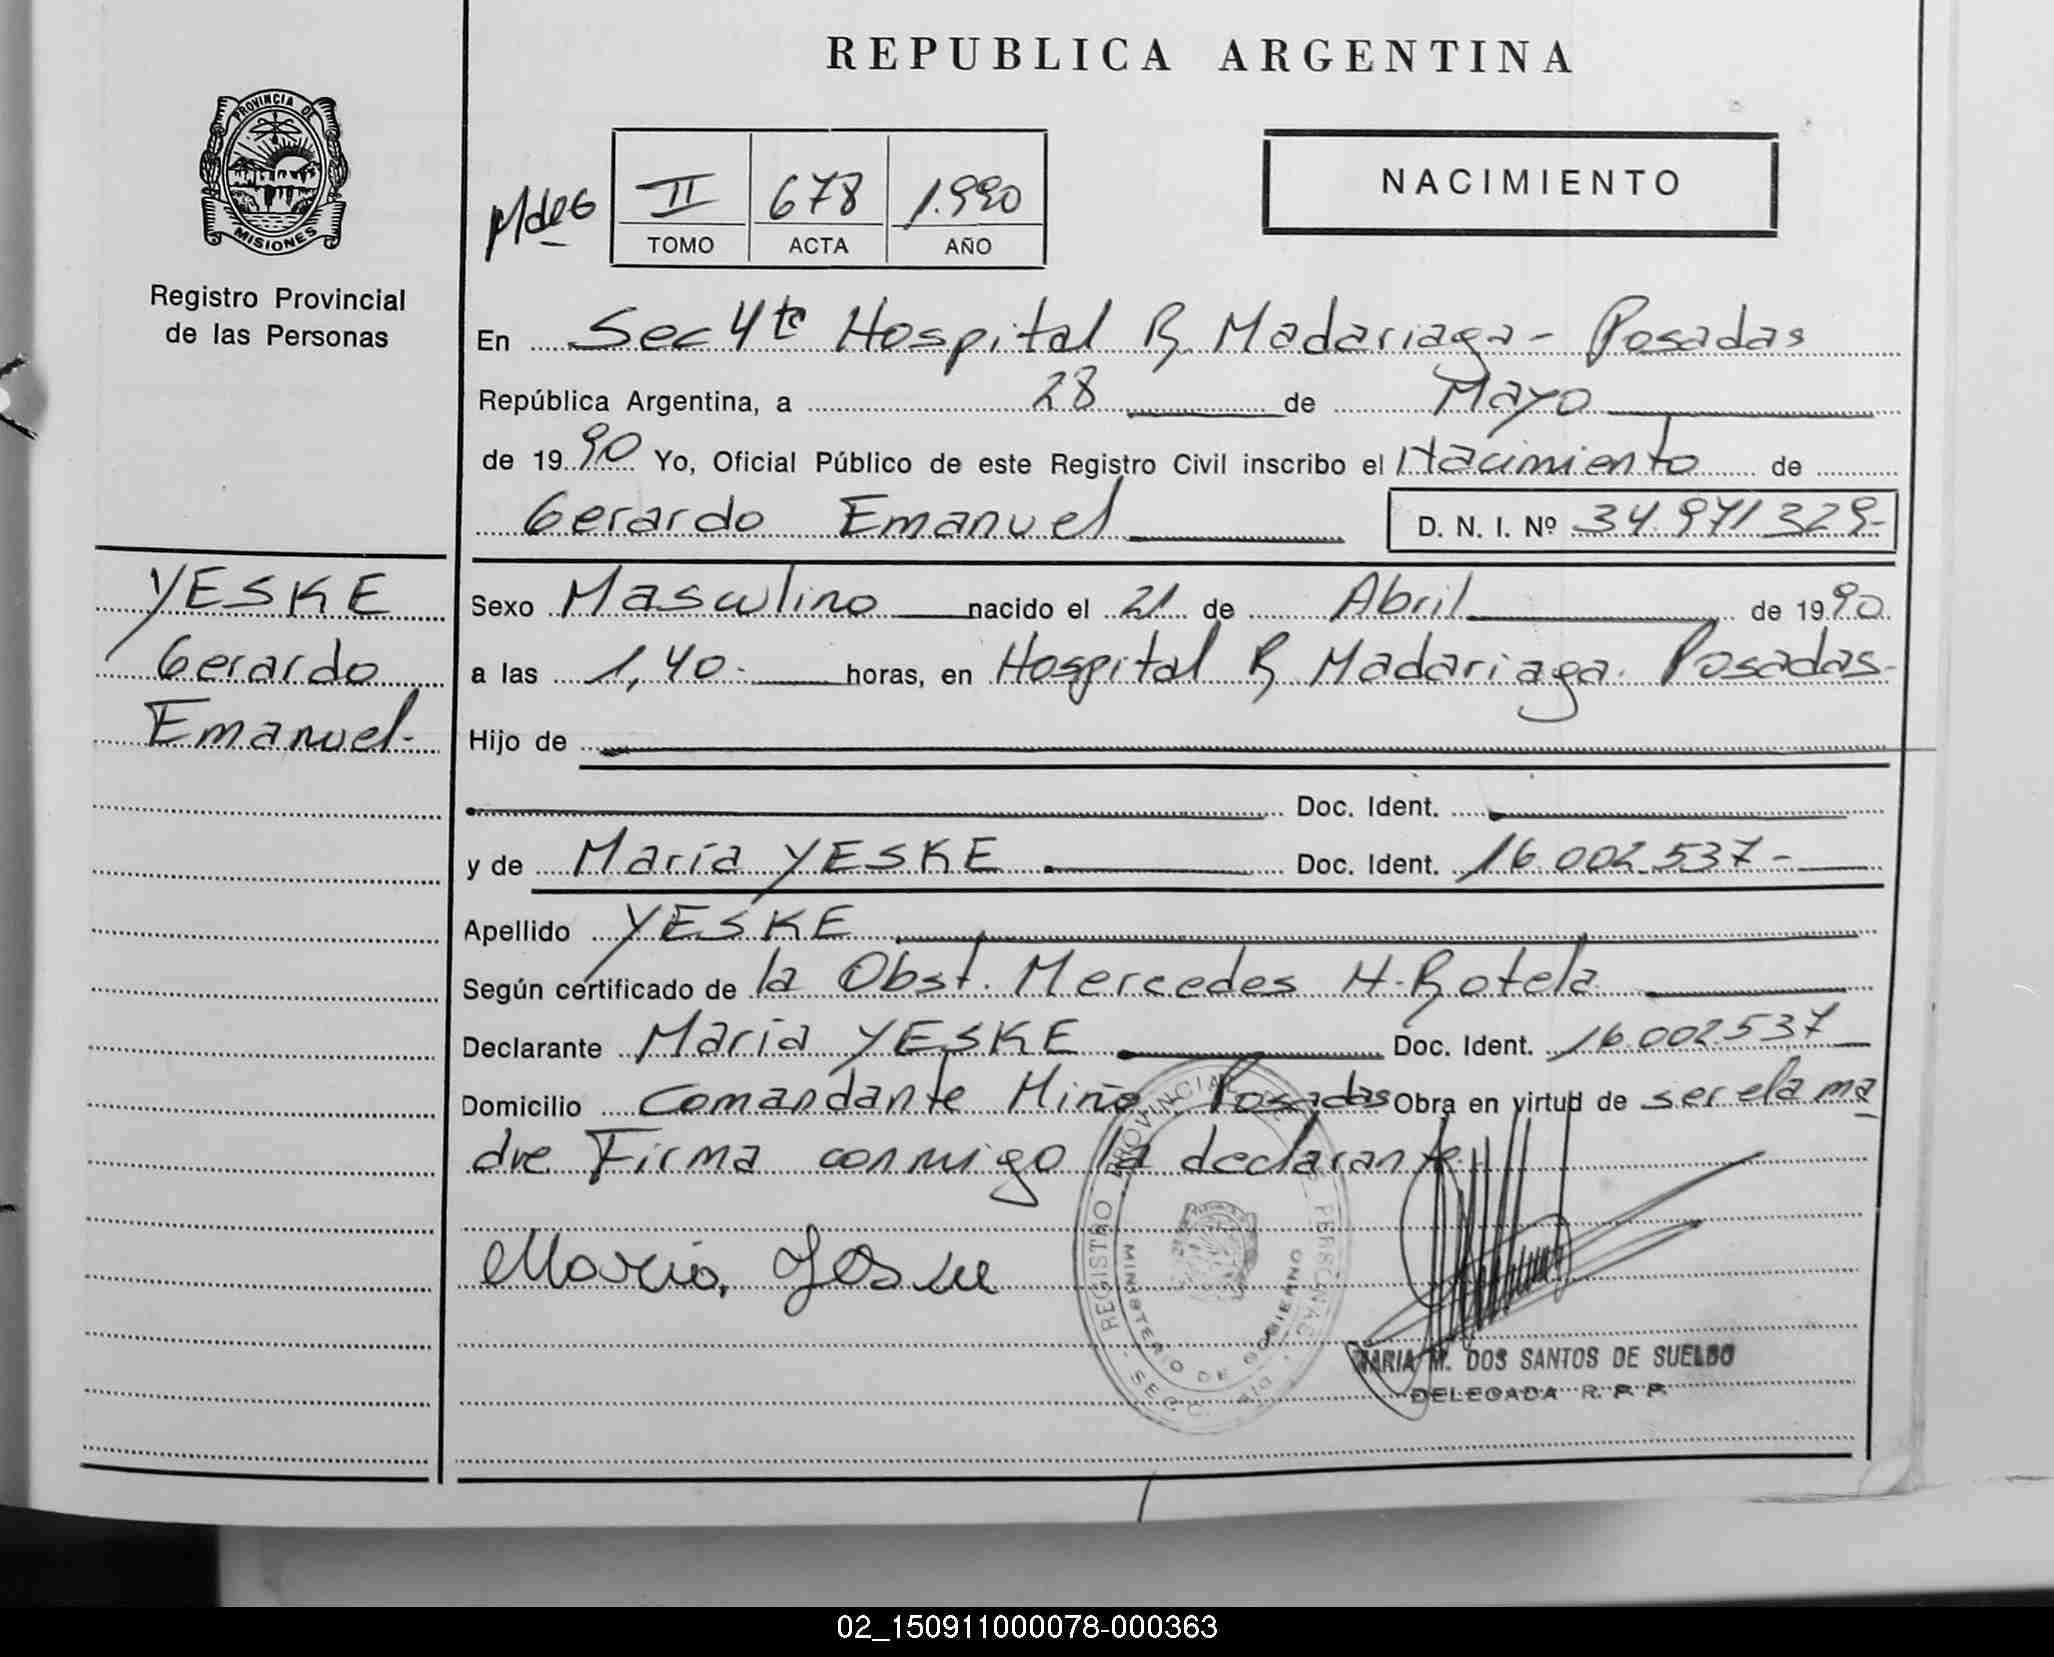 REPUBLICA ARGENTINA
PROVINCIA DE
MISIONES
Registro Provincial
de las Personas
II 678 1.990
TOMO ACTA AÑO
NACIMIENTO
En Sec 4ta Hospital R. Madariaga - Posadas
República Argentina, a 28 de Mayo
de 1990 Yo, Oficial Público de este Registro Civil inscribo el Nacimiento de
Gerardo Emanuel D. N. I. Nº 34.971329-
YESKE
Gerardo
Emanuel.
Sexo Masculino nacido el 21 de Abril de 1990.
a las 1,40. horas, en Hospital R. Madariaga. Posadas-
Hijo de
Doc. Ident.
y de María YESKE Doc. Ident. 16.002.537-
Apellido YESKE
Según certificado de la Obst. Mercedes H. Rotela
Declarante María YESKE Doc. Ident. 16.002537
Domicilio Comandante Miño Posadas Obra en virtud de ser ela ma
dre Firma conmigo la declarante.
María Yeske
REGISTRO PROVINCIAL DE PERSONAS
MINISTERIO DE GOBIERNO
SECC.
MARIA M. DOS SANTOS DE SUELDO
DELEGADA R. P. P.
02_150911000078-000363